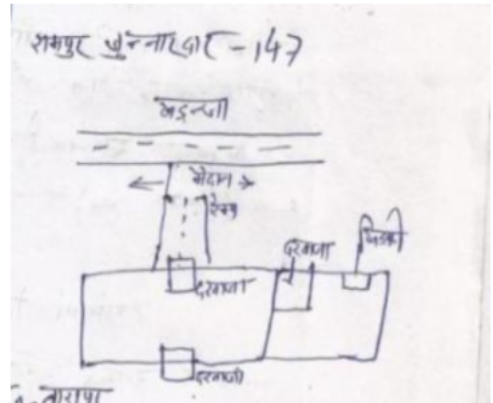 रामपुर जुन्नारदार - 147
खड़न्जा
मैदान
रैम्प
दरवाजा
खिड़की
दरवाजा
दरवाजा